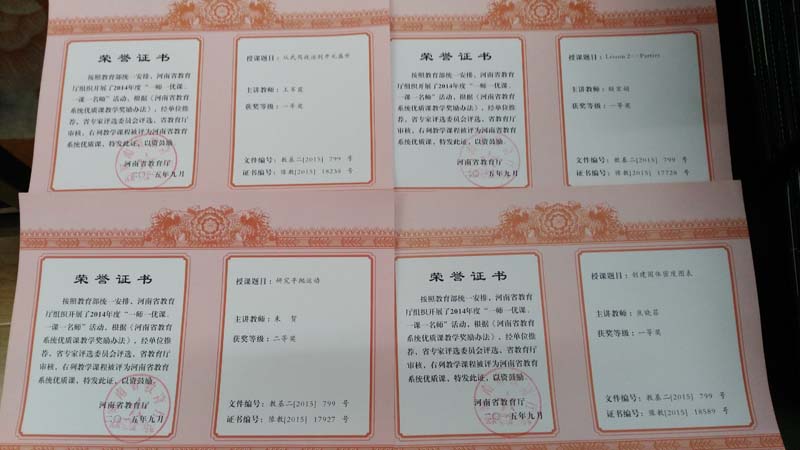 荣誉证书
按照教育部统一安排、河南省教育
厅组织开展了2014年度“一师一优课、
一课一名师”活动。根据《河南省教育
系统优质课教学奖励办法》，经单位推
荐、省专家评选委员会评选、省教育厅
审核，右列教学课程被评为河南省教育
系统优质课，特发此证，以资鼓励。
河南省教育厅
二〇一五年九月
授课题目：从贞观政治到开元盛世
主讲教师：王军霞
获奖等级：一等奖
文件编号：教基二[2015] 799 号
证书编号：豫教[2015] 18238 号
荣誉证书
按照教育部统一安排、河南省教育
厅组织开展了2014年度“一师一优课、
一课一名师”活动。根据《河南省教育
系统优质课教学奖励办法》，经单位推
荐、省专家评选委员会评选、省教育厅
审核，右列教学课程被评为河南省教育
系统优质课，特发此证，以资鼓励。
河南省教育厅
二〇一五年九月
授课题目：Lesson 2---Parties
主讲教师：
获奖等级：一等奖
文件编号：教基二[2015] 799 号
证书编号：豫教[2015] 17728 号
荣誉证书
按照教育部统一安排、河南省教育
厅组织开展了2014年度“一师一优课、
一课一名师”活动。根据《河南省教育
系统优质课教学奖励办法》，经单位推
荐、省专家评选委员会评选、省教育厅
审核，右列教学课程被评为河南省教育
系统优质课，特发此证，以资鼓励。
河南省教育厅
二〇一五年九月
授课题目：研究平抛运动
主讲教师：朱 贺
获奖等级：二等奖
文件编号：教基二[2015] 799 号
证书编号：豫教[2015] 17927 号
荣誉证书
按照教育部统一安排、河南省教育
厅组织开展了2014年度“一师一优课、
一课一名师”活动。根据《河南省教育
系统优质课教学奖励办法》，经单位推
荐、省专家评选委员会评选、省教育厅
审核，右列教学课程被评为河南省教育
系统优质课，特发此证，以资鼓励。
河南省教育厅
二〇一五年九月
授课题目：创建固体密度图表
主讲教师：焦晓蓓
获奖等级：一等奖
文件编号：教基二[2015] 799 号
证书编号：豫教[2015] 18589 号